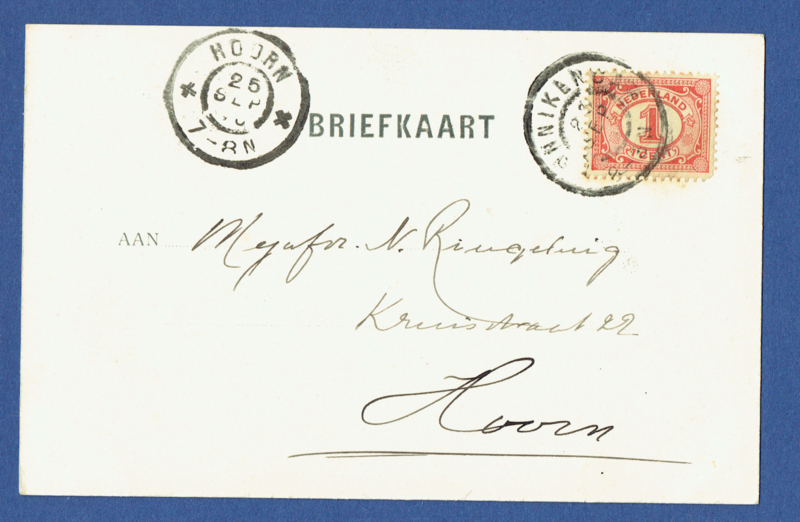 HOORN
25
SEP
7-8N
BRIEFKAART
NEDERLAND
1
CENT
AAN Mejufr. N. Ringeling
Kruisstraat 22
Hoorn